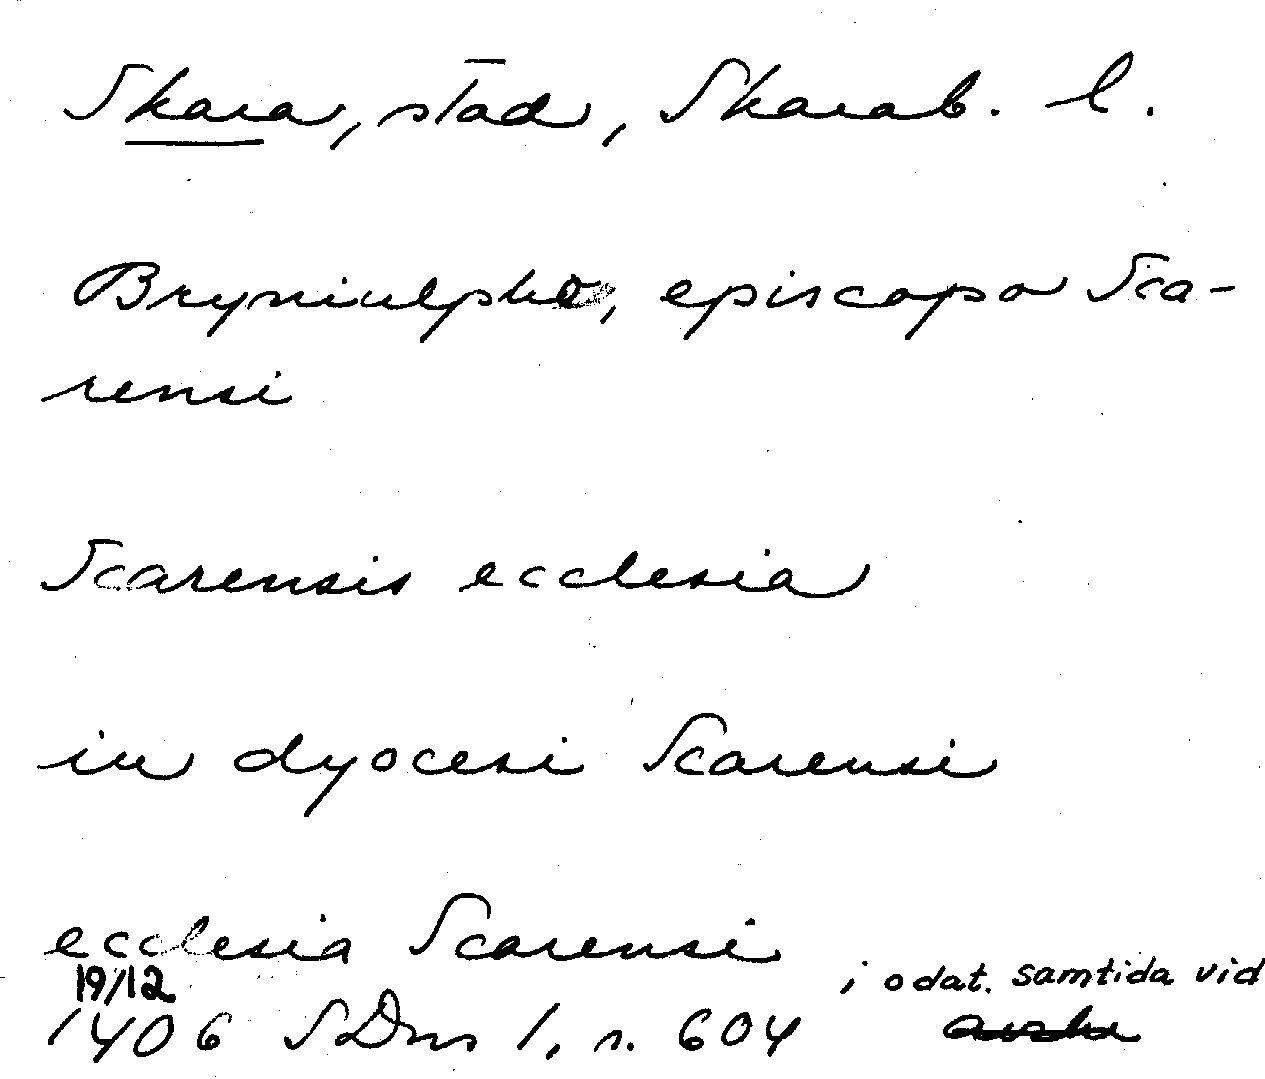 Skara, stad, Skarab. l.
Bryniulpho, episcopo Sca-
rensi
Scarensis ecclesia
in dyocesi Scarensi
ecclesia Scarensi
19/12 i odat. samtida vid
1406 SDns 1, n. 604